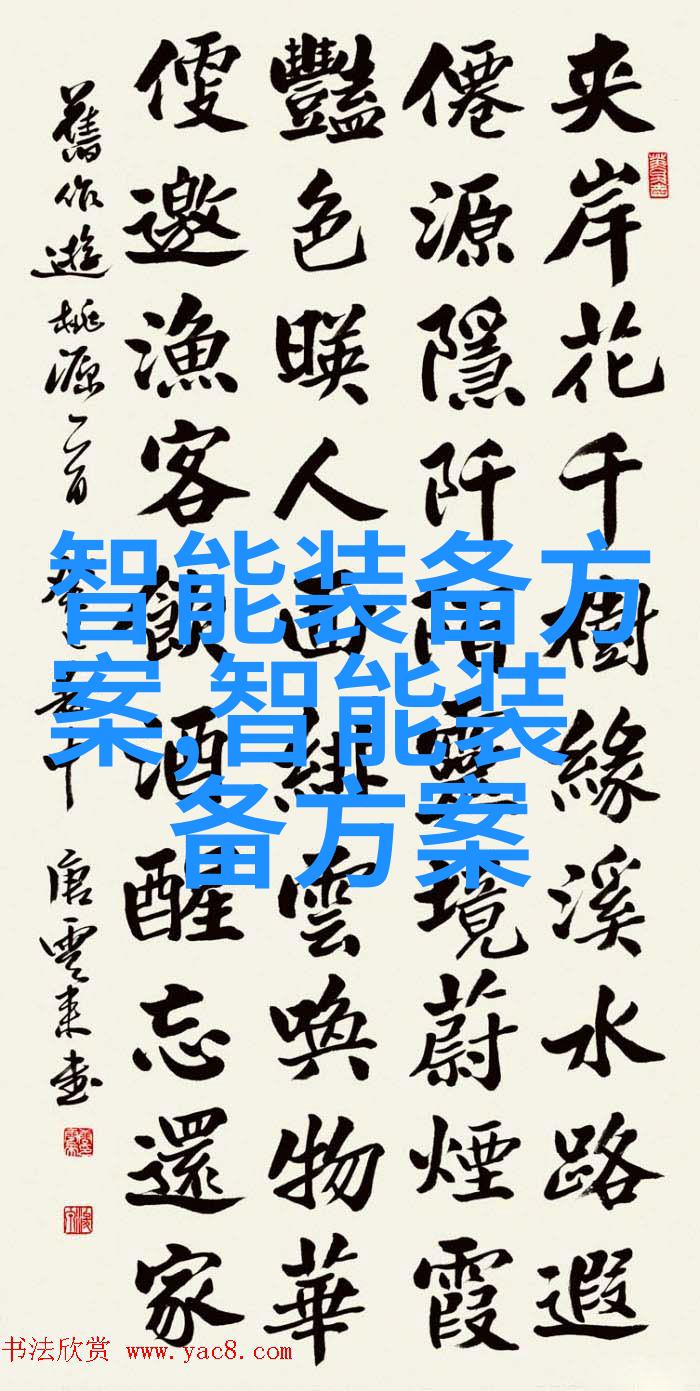 夾岸花千樹緣溪水路遐
僊源隱阡陌靈境蔚煙霞
豔色暎人面緋雲喚物華
便邀漁客飲酒醒忘還家
舊作遊桃源二首 唐雲来書
智能装备方
案,智能装
备方案
书法欣赏 www.yac8.com